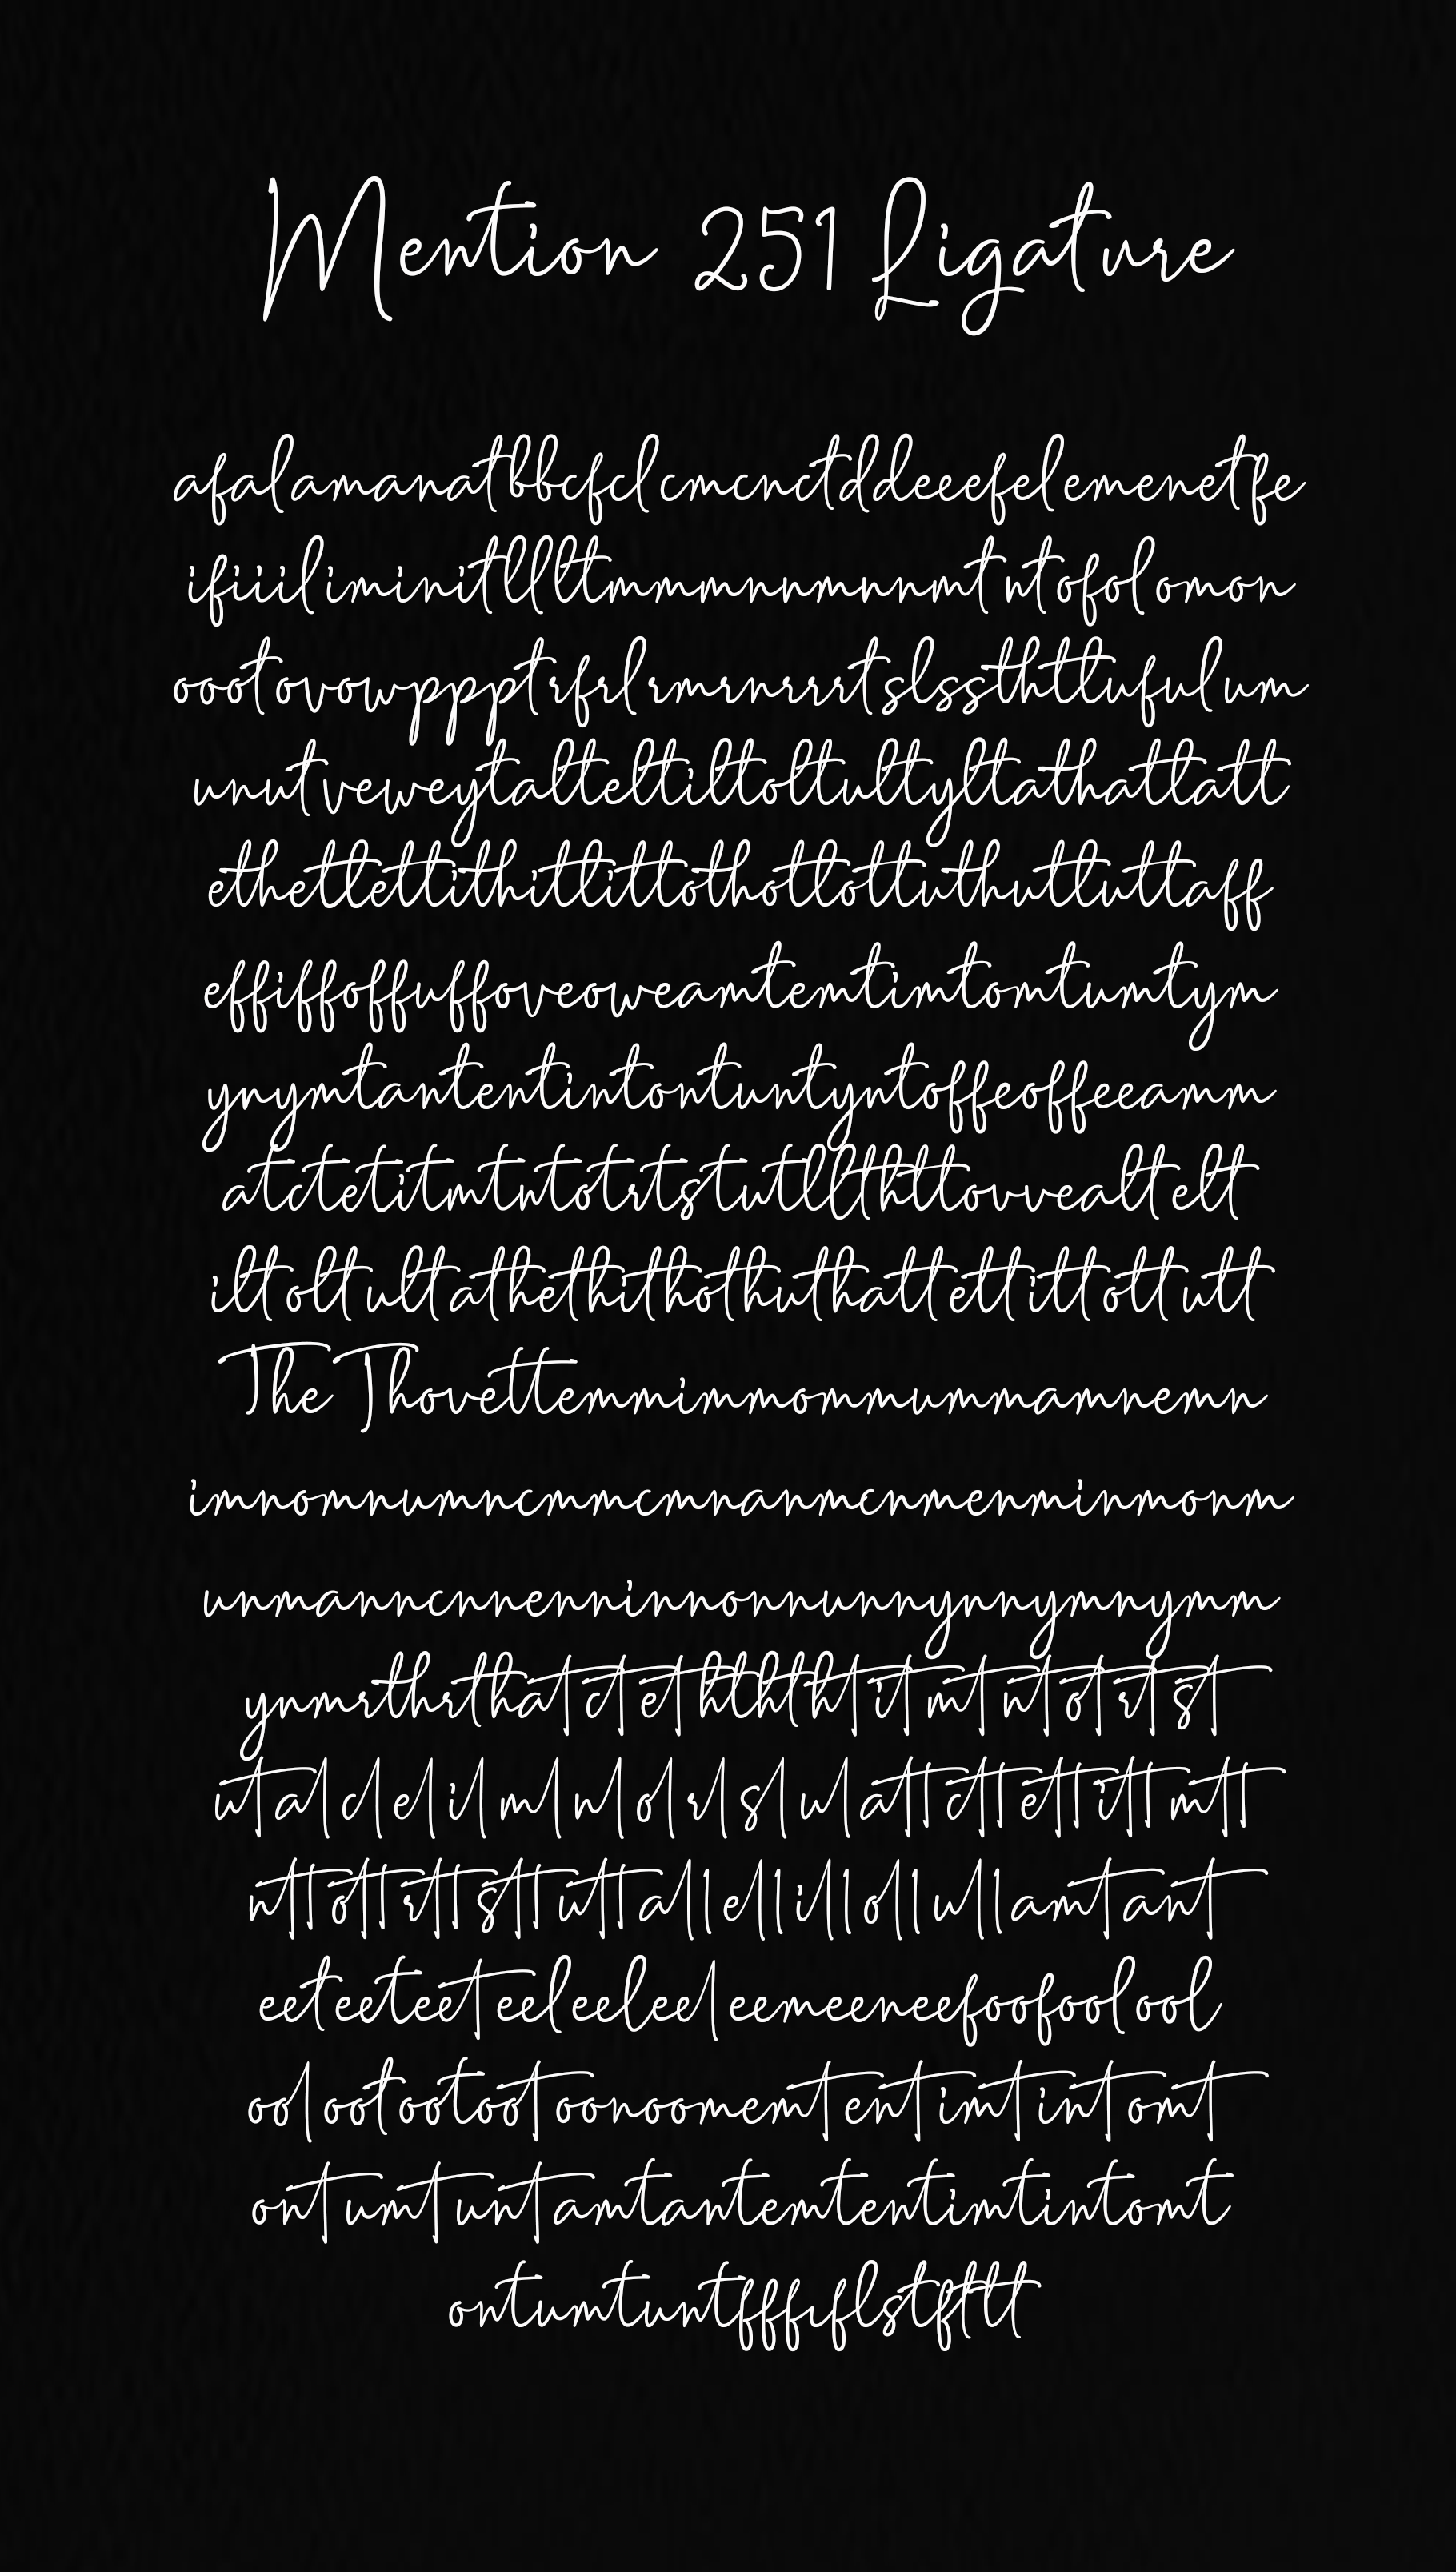 Mention 251 Ligature
afalamanatbbcfclcmcnctddeeefelemenetfe
ifiiiliminitllltmmmnnmnnmtntofolomon
oootovowppptrfrlrmrnrrrtslssthttufulum
unutveweytalteltiltoltultyltathattatt
ethettettithittittothottottuthuttuttaff
effiffoffuffoveoweamtemtimtomtumtym
ynymtantentintontuntyntoffeoffeeamm
atctetitmtntotrtstutllthttovvealtelt
iltoltultathethithothuthattettittottutt
The Thovettemmimmommummamnemn
imnomnumncmmcmnanmcnmenminmonm
unmanncnnenninnonnunnynnymnymm
ynmrthrthatctethththtitmtntotrtst
utalclelilmlnlolrlslulattcttettittmtt
nttottrttsttuttallellillollullamtant
eeteeteeteeleeleeleemeeneefoofoolool
oolootootootoonoomemtentimtintomt
ontumtuntamtantemtentimtintomt